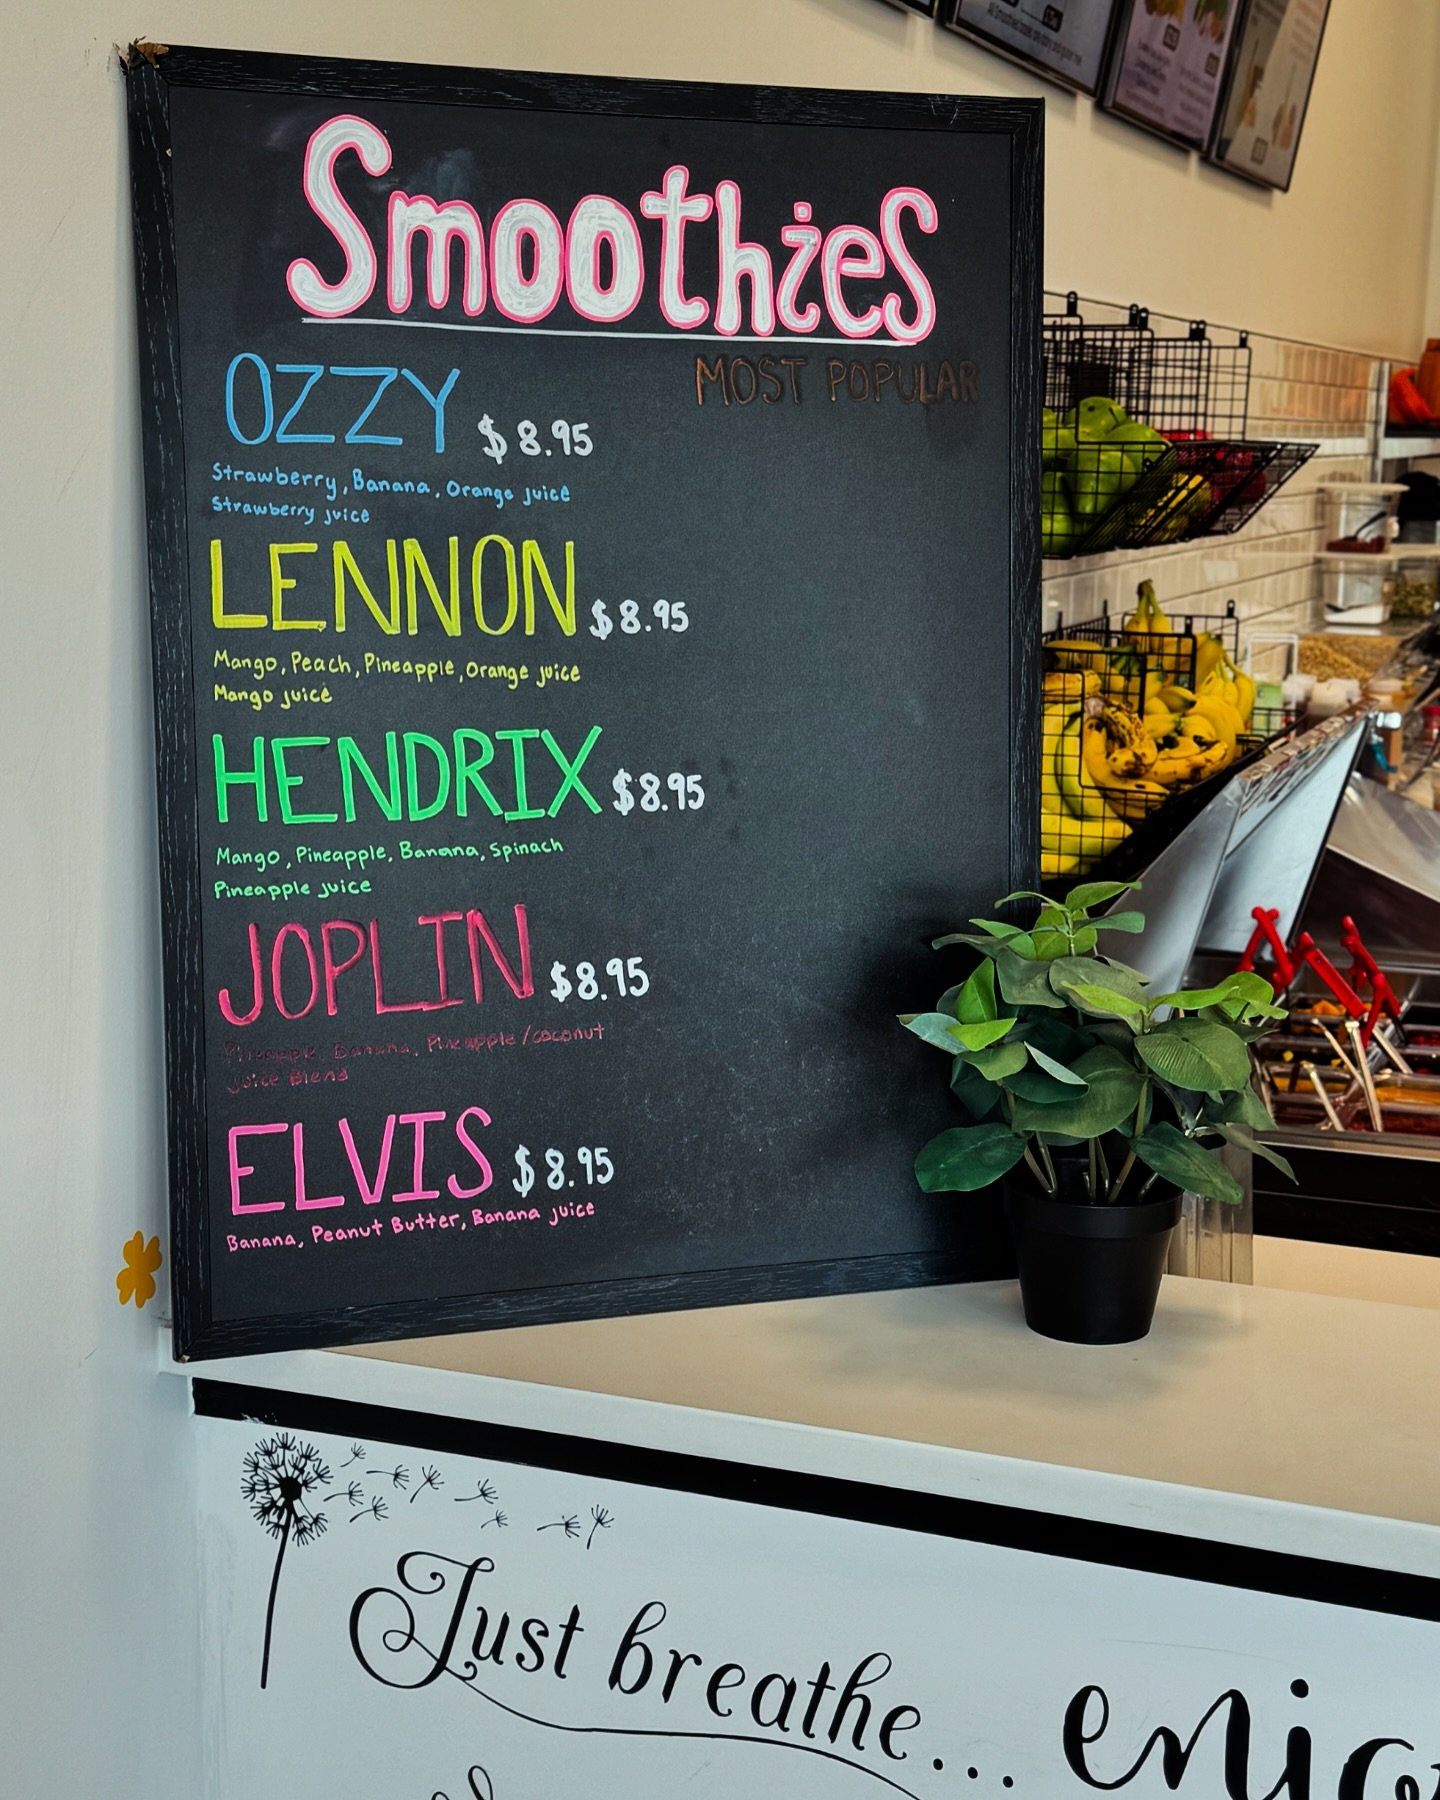 Smoothies
MOST POPULAR
OZZY $8.95
Strawberry, Banana, Orange juice
Strawberry juice
LENNON $8.95
Mango, Peach, Pineapple, Orange juice
Mango juice
HENDRIX $8.95
Mango, Pineapple, Banana, Spinach
Pineapple juice
JOPLIN $8.95
Pineapple, Banana, Pineapple/coconut
Juice Blend
ELVIS $8.95
Banana, Peanut Butter, Banana juice
Just breathe...